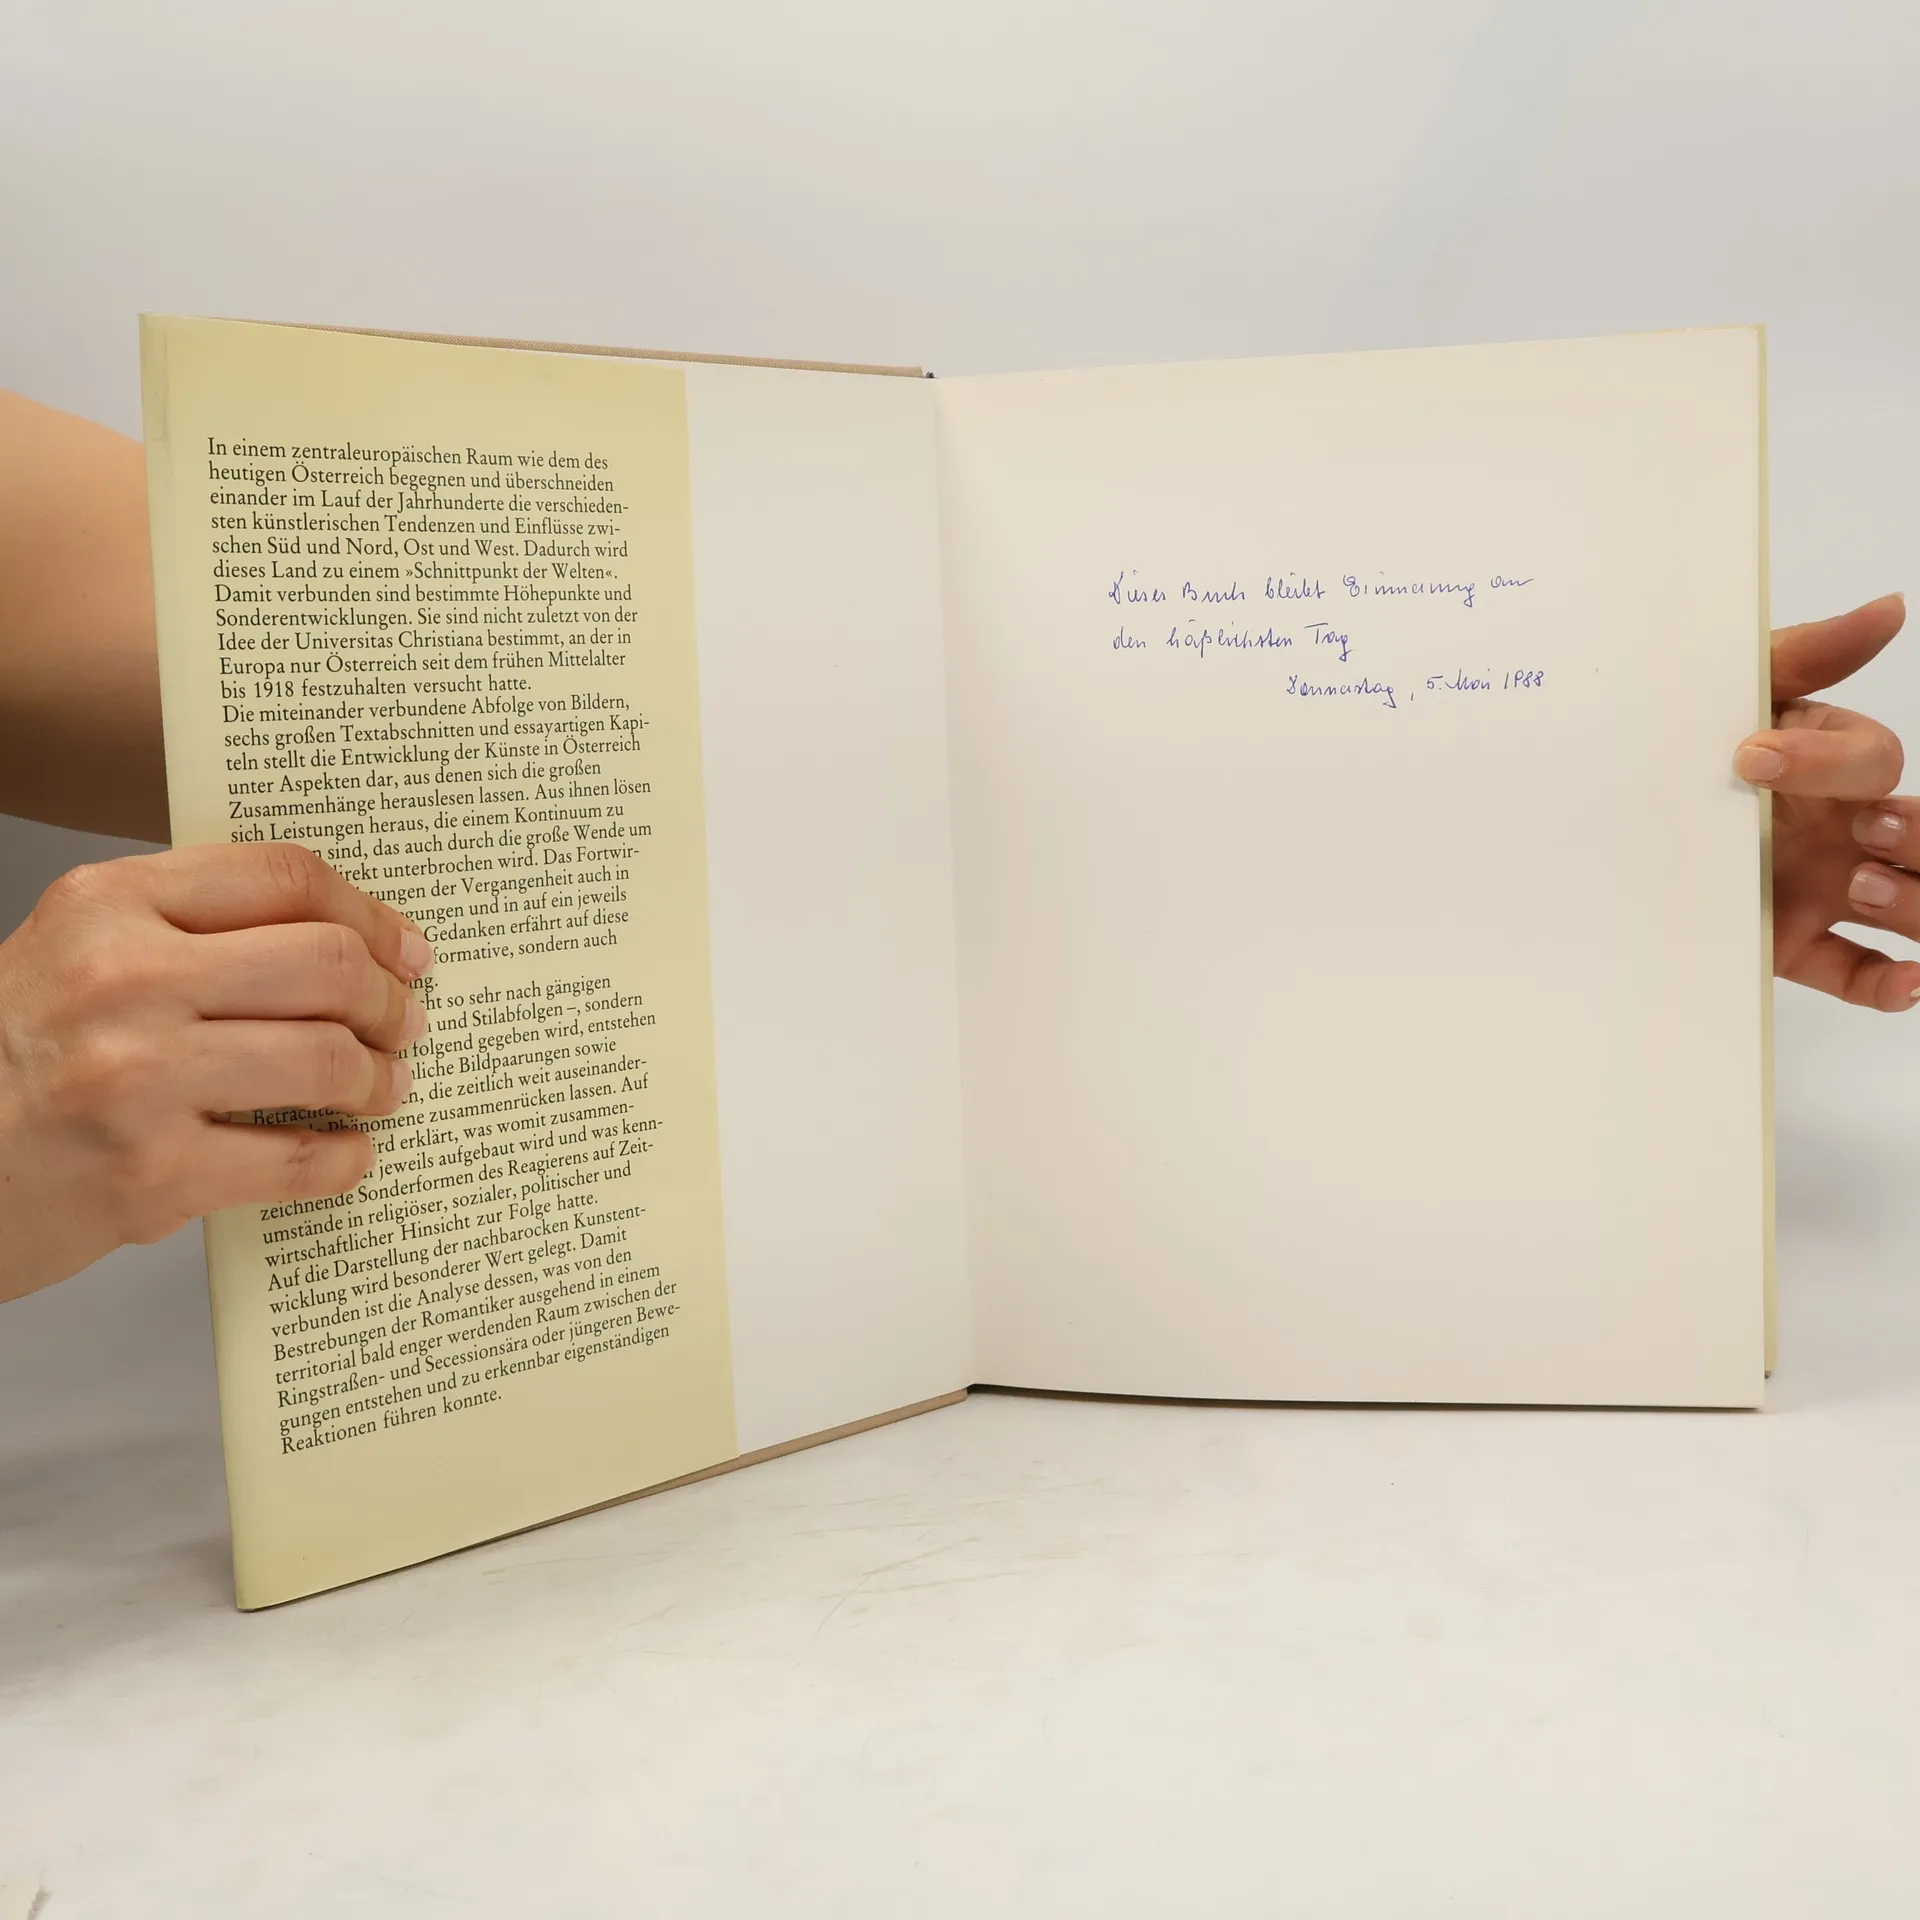 In einem zentraleuropäischen Raum wie dem des
heutigen Österreich begegnen und überschneiden
einander im Lauf der Jahrhunderte die verschieden-
sten künstlerischen Tendenzen und Einflüsse zwi-
schen Süd und Nord, Ost und West. Dadurch wird
dieses Land zu einem »Schnittpunkt der Welten«.
Damit verbunden sind bestimmte Höhepunkte und
Sonderentwicklungen. Sie sind nicht zuletzt von der
Idee der Universitas Christiana bestimmt, an der in
Europa nur Österreich seit dem frühen Mittelalter
bis 1918 festzuhalten versucht hatte.
Die miteinander verbundene Abfolge von Bildern,
sechs großen Textabschnitten und essayartigen Kapi-
teln stellt die Entwicklung der Künste in Österreich
unter Aspekten dar, aus denen sich die großen
Zusammenhänge herauslesen lassen. Aus ihnen lösen
sich Leistungen heraus, die einem Kontinuum zu
sind, das auch durch die große Wende um
direkt unterbrochen wird. Das Fortwir-
der Vergangenheit auch in
und in auf ein jeweils
Gedanken erfährt auf diese
formative, sondern auch
so sehr nach gängigen
und Stilabfolgen –, sondern
folgend gegeben wird, entstehen
Bildpaarungen sowie
die zeitlich weit auseinander-
Phänomene zusammenrücken lassen. Auf
erklärt, was womit zusammen-
jeweils aufgebaut wird und was kenn-
zeichnende Sonderformen des Reagierens auf Zeit-
umstände in religiöser, sozialer, politischer und
wirtschaftlicher Hinsicht zur Folge hatte.
Auf die Darstellung der nachbarocken Kunstent-
wicklung wird besonderer Wert gelegt. Damit
verbunden ist die Analyse dessen, was von den
Bestrebungen der Romantiker ausgehend in einem
territorial bald enger werdenden Raum zwischen der
Ringstraßen- und Secessionsära oder jüngeren Bewe-
gungen entstehen und zu erkennbar eigenständigen
Reaktionen führen konnte.
Dieses Buch bleibt Erinnerung an
den häßlichsten Tag
Donnerstag, 5. Mai 1988